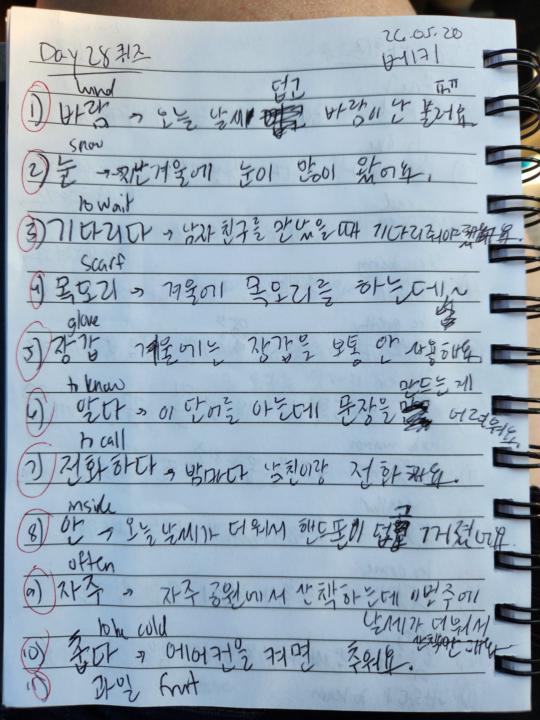 Day 28 퀴즈
26.05.20
베키
wind
1) 바람 → 오늘 날씨 덥고 바람이 난 불러요
snow
2) 눈 → 지난겨울에 눈이 많이 왔어요.
to wait
3) 기다리다 → 남자친구를 만났을 때 기다려줘야
scarf
4) 목도리 → 겨울에 목도리를 하는데~
glove
5) 장갑 겨울에는 장갑을 보통 안 사용해요
to know
6) 알다 → 이 단어를 아는데 문장을 만드는게 어려워요.
to call
7) 전화하다 → 밤마다 남친이랑 전화해요.
inside
8) 안 → 오늘 날씨가 더워서 핸드폰이 꺼졌어요.
often
9) 자주 → 자주 공원에서 산책하는데 이번주에
날씨가 더워서
산책안해요
to be cold
10) 춥다 → 에어컨을 켜면 추워요.
11) 과일 fruit